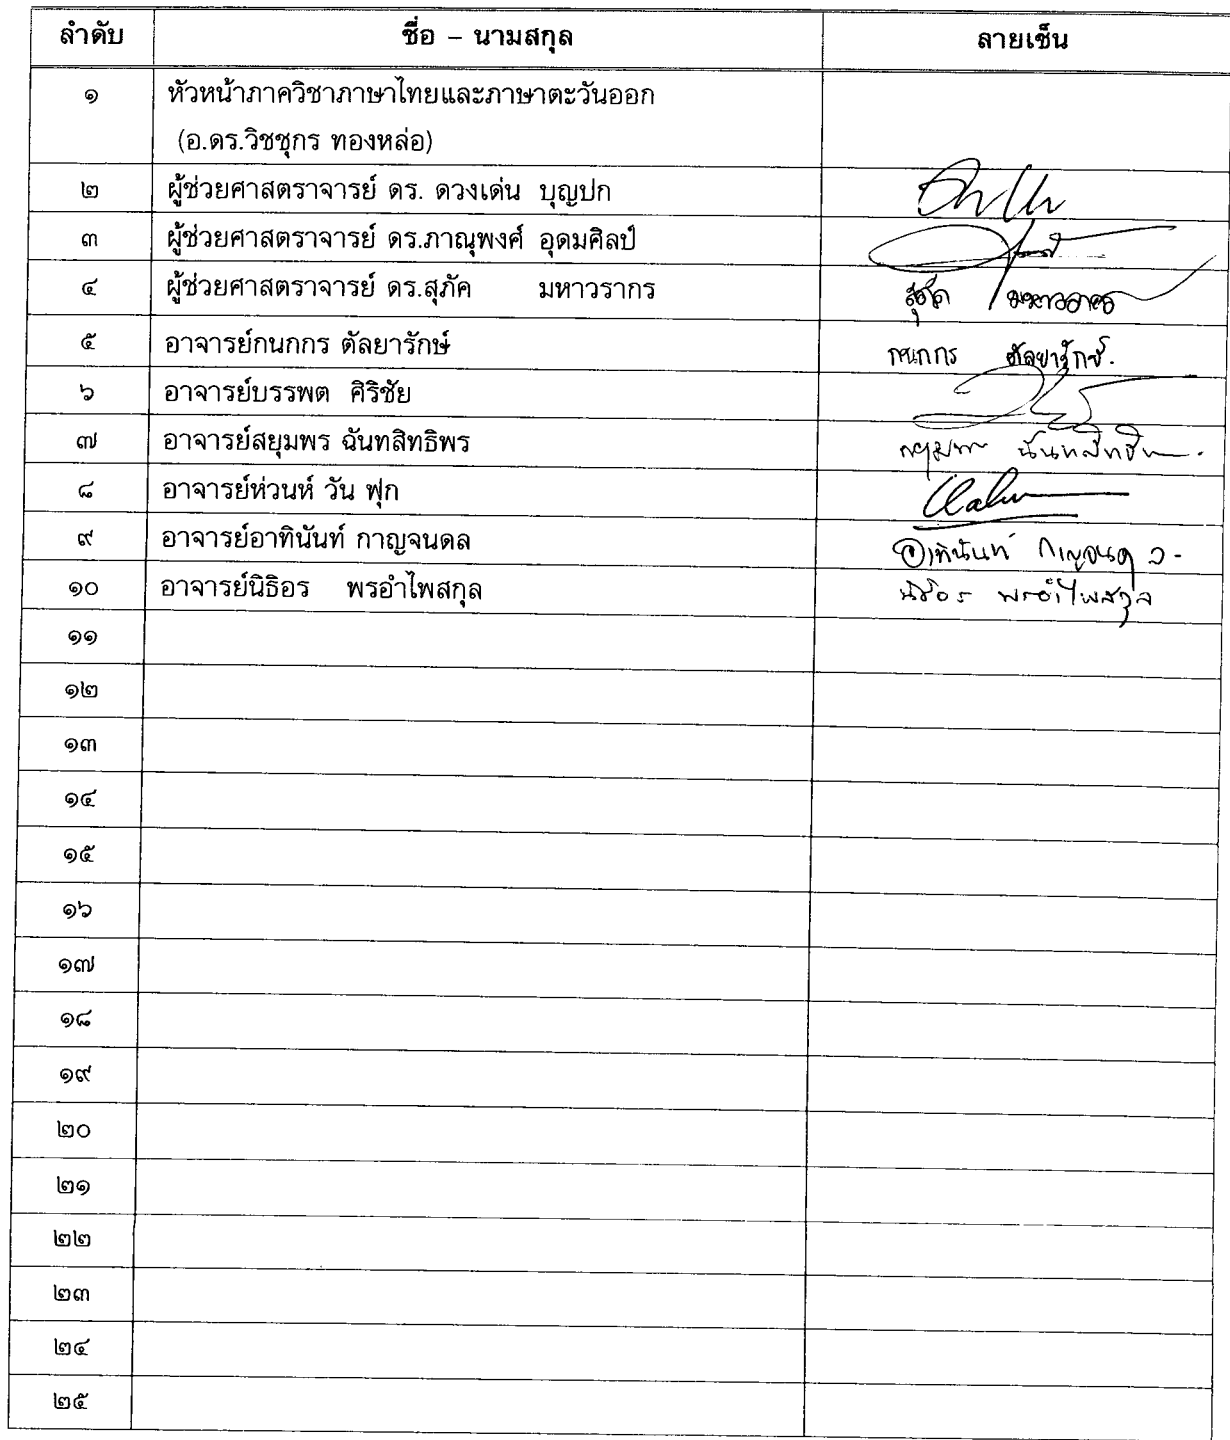 ลำดับ ชื่อ – นามสกุล ลายเซ็น
๑ หัวหน้าภาควิชาภาษาไทยและภาษาตะวันออก
(อ.ดร.วิชชุกร ทองหล่อ)
๒ ผู้ช่วยศาสตราจารย์ ดร. ดวงเด่น บุญปก
๓ ผู้ช่วยศาสตราจารย์ ดร.ภาณุพงศ์ อุดมศิลป์
๔ ผู้ช่วยศาสตราจารย์ ดร.สุภัค มหาวรากร สุภัค มหาวรากร
๕ อาจารย์กนกกร ตัลยารักษ์ กนกกร ตัลยารักษ์.
๖ อาจารย์บรรพต ศิริชัย
๗ อาจารย์สยุมพร ฉันทสิทธิพร
๘ อาจารย์ห่วนห์ วัน ฟุก
๙ อาจารย์อาทินันท์ กาญจนดล อาทินันท์ กาญจนดล
๑๐ อาจารย์นิธิอร พรอำไพสกุล นิธิอร พรอำไพสกุล
๑๑
๑๒
๑๓
๑๔
๑๕
๑๖
๑๗
๑๘
๑๙
๒๐
๒๑
๒๒
๒๓
๒๔
๒๕